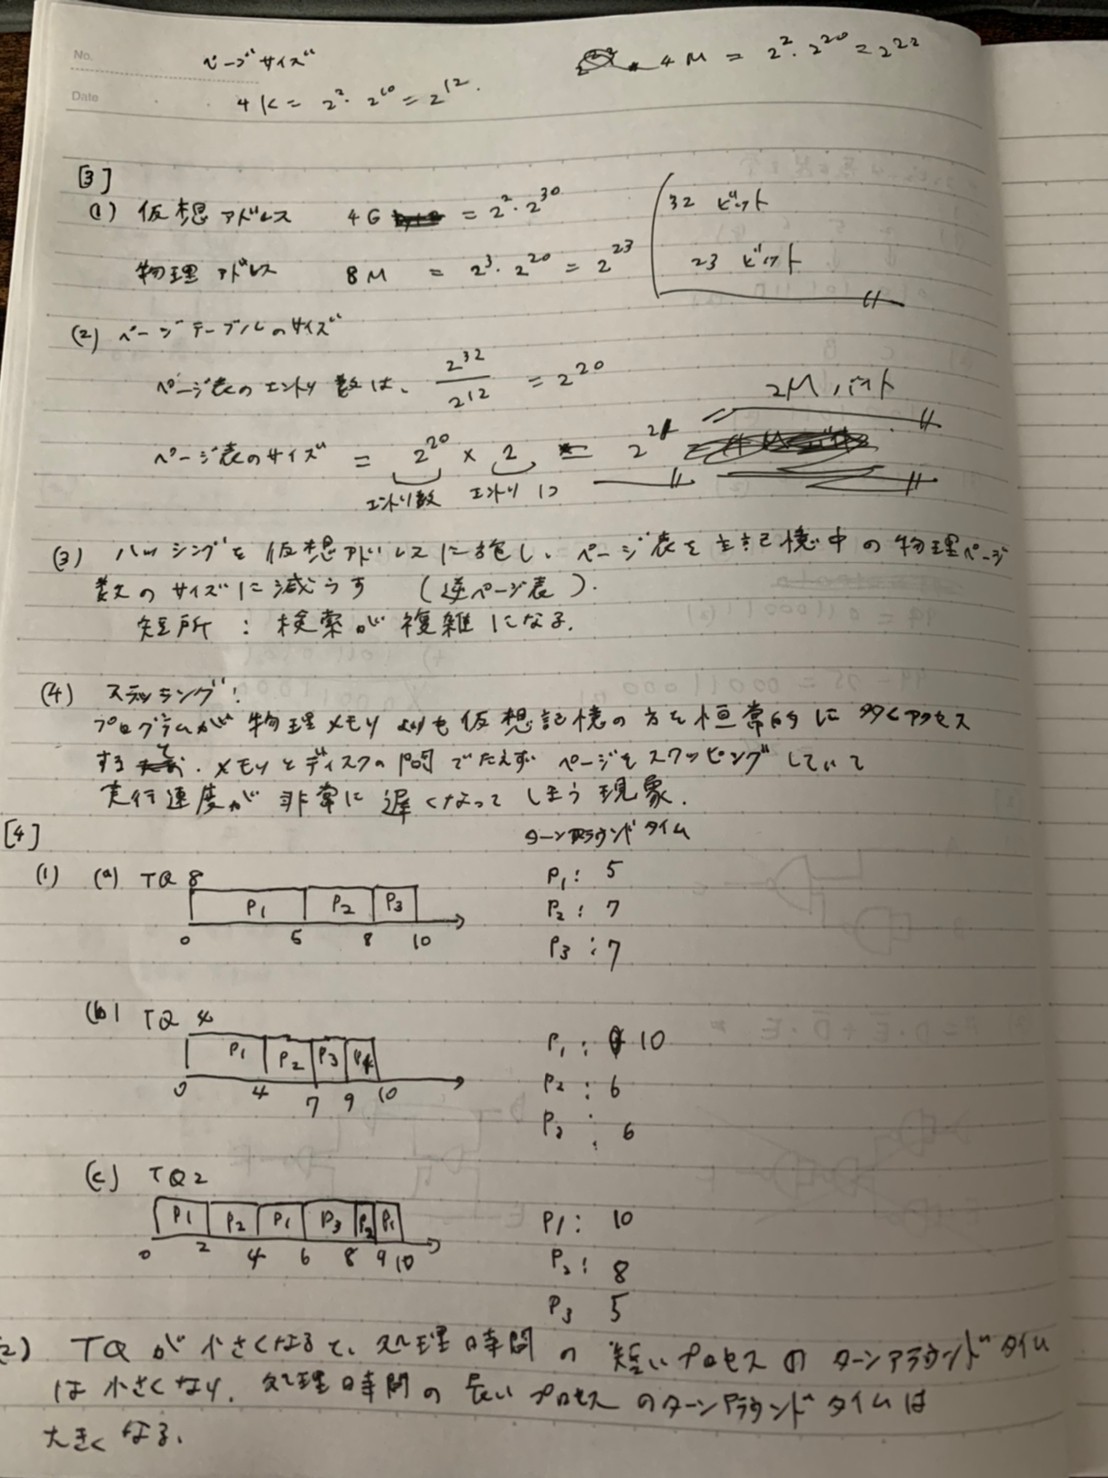 No.
ページサイズ
4M = 2²・2²⁰ = 2²²
Date
4K = 2²・2¹⁰ = 2¹².
[3]
(1) 仮想アドレス 4G = 2²・2³⁰ 32 ビット
物理アドレス 8M = 2³・2²⁰ = 2²³ 23 ビット
(2) ページテーブルのサイズ
ページ表のエントリ数は、 2³²/2¹² = 2²⁰
2Mバイト
ページ表のサイズ = 2²⁰ × 2 = 2²¹
エントリ数 エントリ 1つ
(3) ハッシングを仮想アドレスに施し、ページ表を主記憶中の物理ページ
数のサイズに減らす (逆ページ表).
短所 : 検索が複雑になる.
(4) スラッシング:
プログラムが物理メモリよりも仮想記憶の方を恒常的に多くアクセス
する . メモリとディスクの間でたえずページをスワッピングしていて
実行速度が非常に遅くなってしまう現象.
[4]
ターンアラウンドタイム
(1) (a) TQ 8
P₁ P₂ P₃
0 5 8 10
P₁ : 5
P₂ : 7
P₃ : 7
(b) TQ 4
P₁ P₂ P₃
0 4 7 9 10
P₁ : 10
P₂ : 6
P₃ : 6
(c) TQ 2
P₁ P₂ P₁ P₃ P₂ P₁
0 2 4 6 8 9 10
P₁ : 10
P₂ : 8
P₃ 5
2) TQが小さくなると、処理時間の短いプロセスのターンアラウンドタイム
は小さくなり、処理時間の長いプロセスのターンアラウンドタイムは
大きくなる.